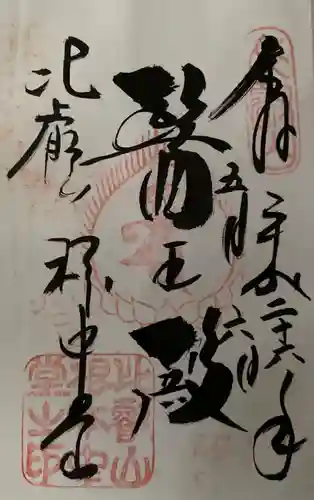 奉拝
平成二十六年
五月六日
醫王殿
比叡山
根本中堂
比叡山
根本中
堂之印